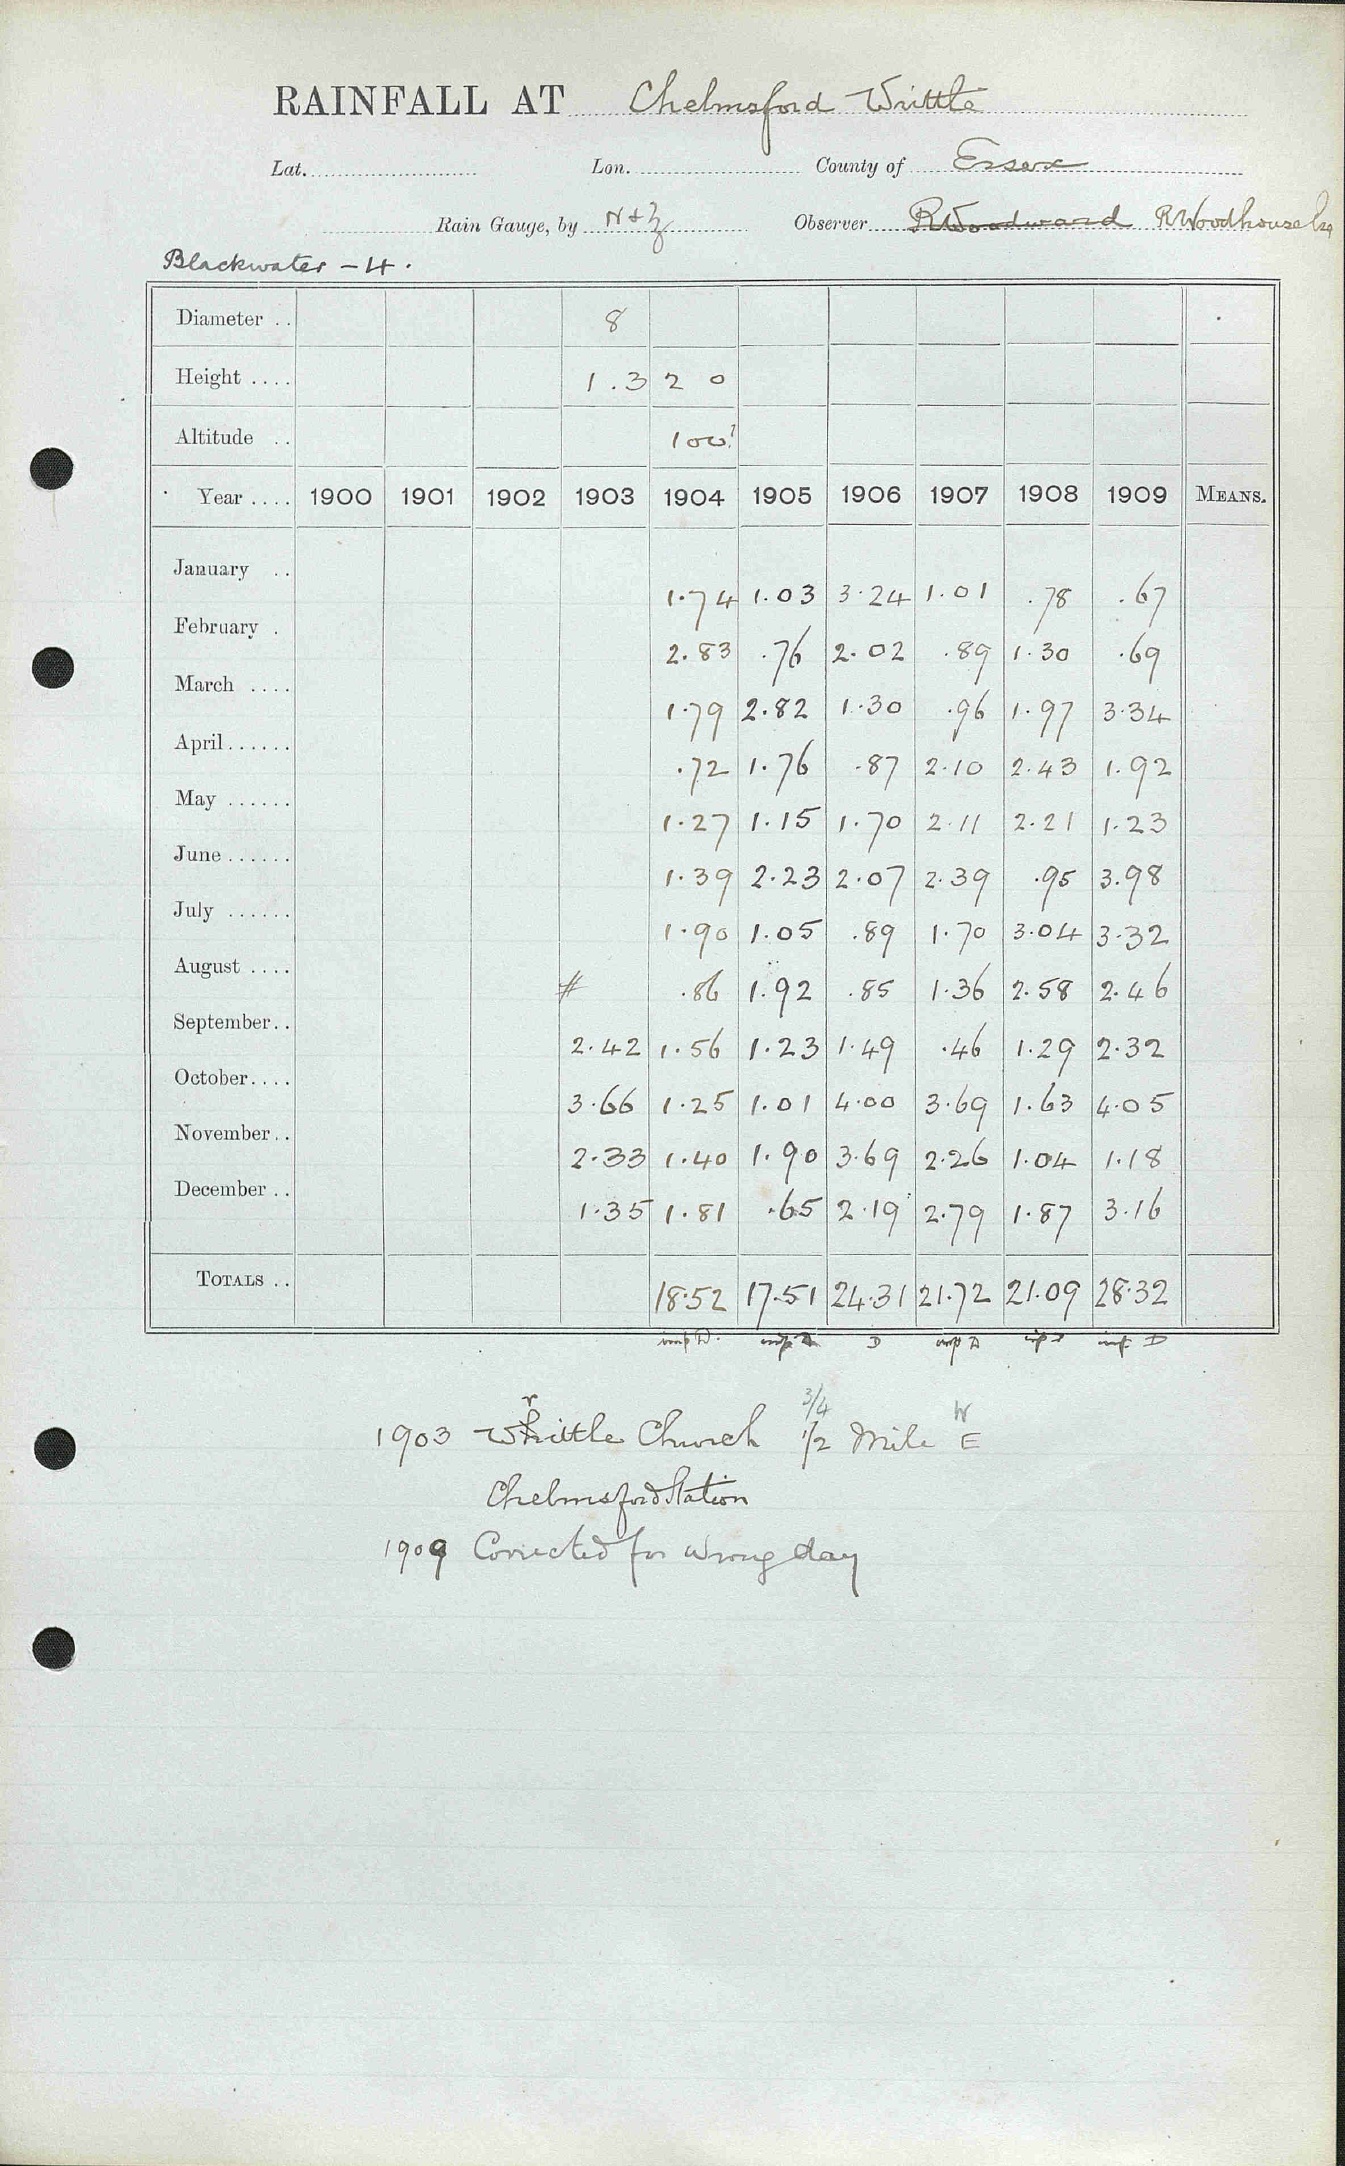 RAINFALL AT Chelmsford Writtle
Lat. Lon. County of Essex
Rain Gauge, by N & Z Observer R Woodward R Woodhouse Esq
Blackwater - 4.
Diameter .. 8
Height .... 1.3 2 0
Altitude .. 100?
Year .... 1900 1901 1902 1903 1904 1905 1906 1907 1908 1909 MEANS.
January .. 1.74 1.03 3.24 1.01 .78 .67
February . 2.83 .76 2.02 .89 1.30 .69
March .... 1.79 2.82 1.30 .96 1.97 3.34
April...... .72 1.76 .87 2.10 2.43 1.92
May ...... 1.27 1.15 1.70 2.11 2.21 1.23
June...... 1.39 2.23 2.07 2.39 .95 3.98
July ...... 1.90 1.05 .89 1.70 3.04 3.32
August .... # .86 1.92 .85 1.36 2.58 2.46
September.. 2.42 1.56 1.23 1.49 .46 1.29 2.32
October.... 3.66 1.25 1.01 4.00 3.69 1.63 4.05
November.. 2.33 1.40 1.90 3.69 2.26 1.04 1.18
December .. 1.35 1.81 .65 2.19 2.79 1.87 3.16
TOTALS .. 18.52 17.51 24.31 21.72 21.09 28.32
D D D D
r 3/4 W
1903 Whittle Church 1/2 Mile E
Chelmsford Station
1909 Corrected for wrong day